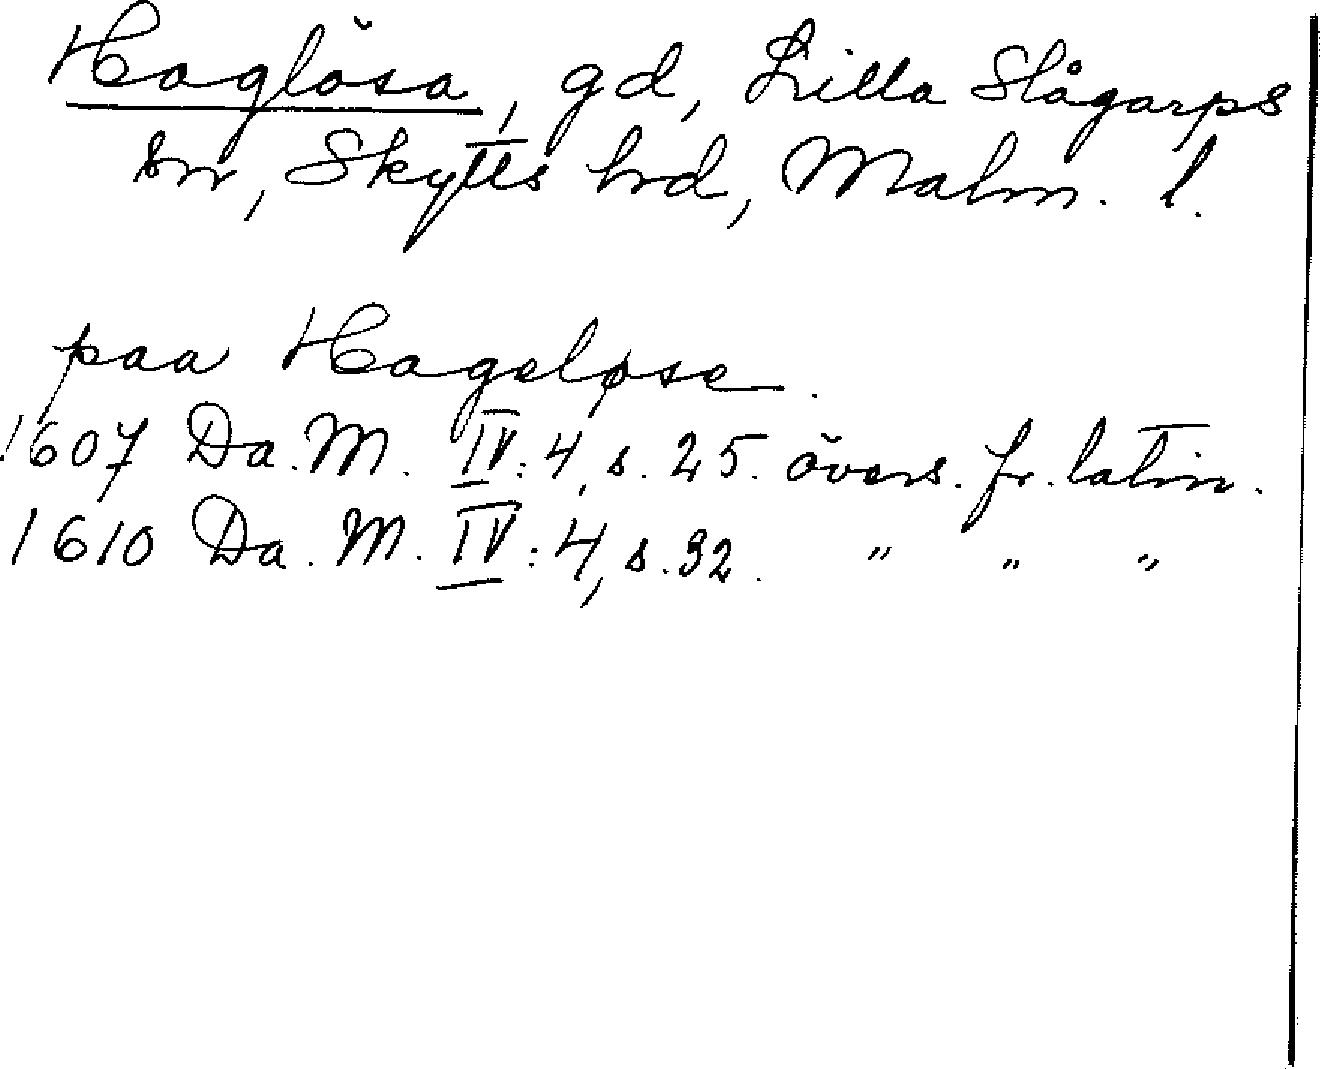 Haglösa, gd, Lilla Slågarps
sn, Skytts hrd, Malm. l.
paa Hageløse.
1607 Da. M. IV:4, s. 25. övers. fr. latin.
1610 Da. M. IV:4, s. 32. " " "